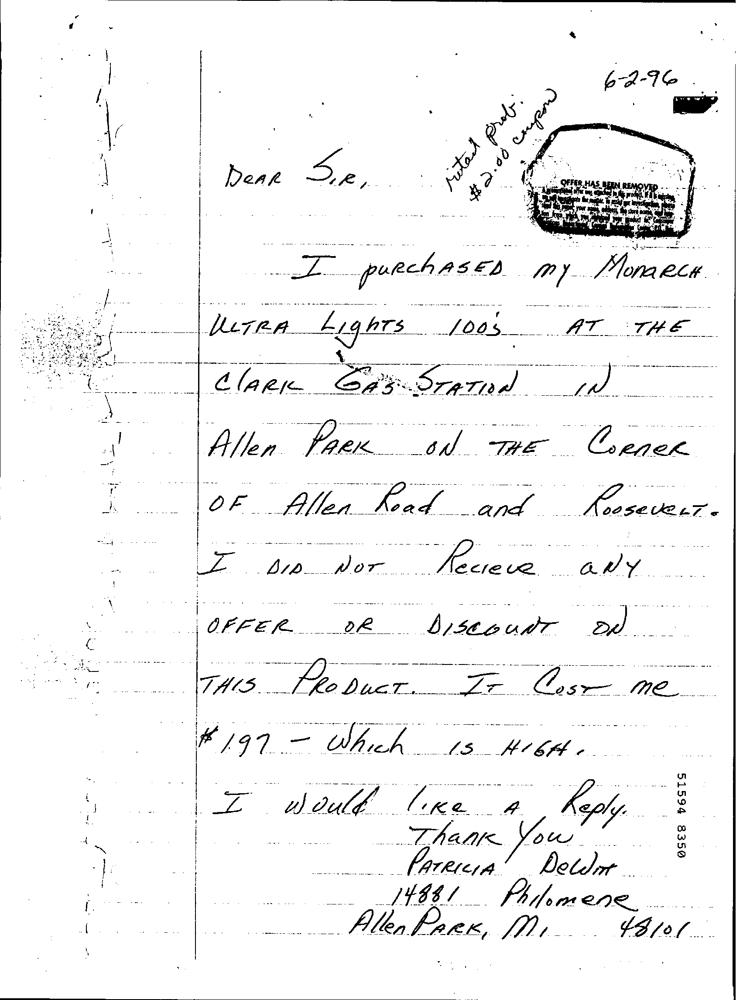 6-2-96
retail prob.
$2.00 coupon
OFFER HAS BEEN REMOVED
Dear Sir,
I purchased my Monarch
Ultra Lights 100's at the
Clark Gas Station in
Allen Park on the Corner
of Allen Road and Roosevelt.
I did not Recieve any
offer or Discount on
this Product. It Cost me
$1.97 - which is High.
I would like a Reply.
Thank You
Patricia DeWitt
14881 Philomene
Allen Park, Mi 48101
51594 8350